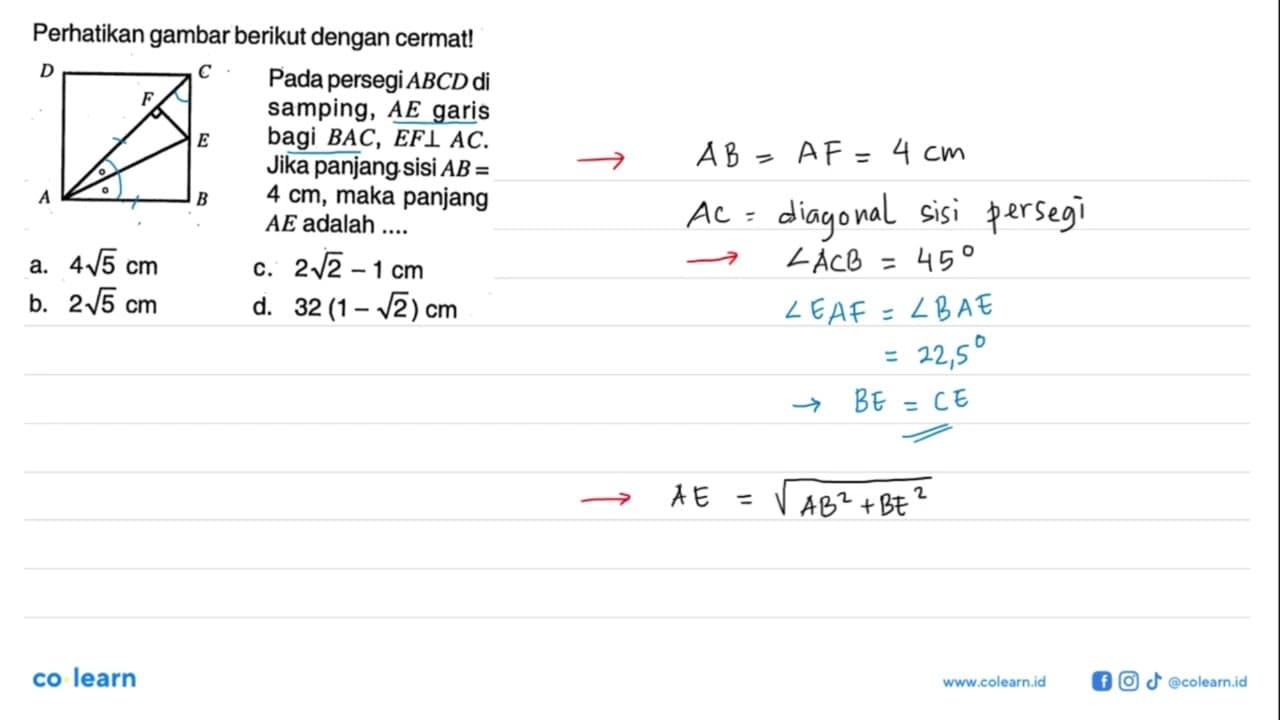 Perhatikan gambar berikut dengan cermat!
D
C
F
E
A
B
Pada persegi ABCD di
samping, AE garis
bagi BAC, EF⊥ AC.
Jika panjang sisi AB =
4 cm, maka panjang
AE adalah ....
a. 4√5 cm
c. 2√2 – 1 cm
b. 2√5 cm
d. 32 (1 – √2) cm
→ AB = AF = 4 cm
AC = diagonal sisi persegi
→ ∠ACB = 45°
∠EAF = ∠BAE
= 22,5°
→ BE = CE
→ AE = √AB² + BE²
co learn
www.colearn.id
@colearn.id